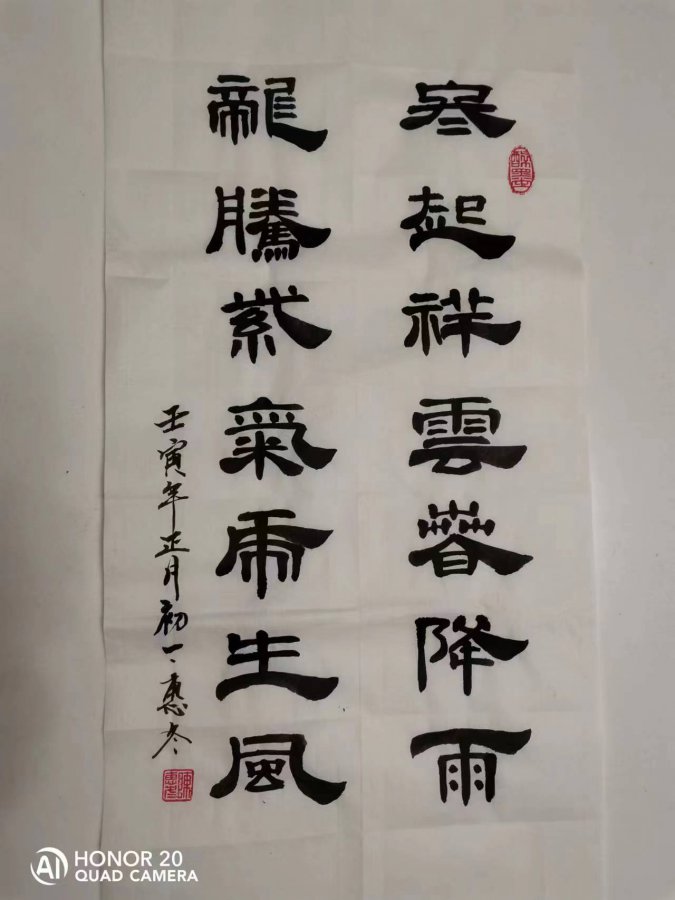 寒起祥雲春降雨
龍騰紫氣虎生風
壬寅年正月初一、惠冬
HONOR 20
QUAD CAMERA
AI